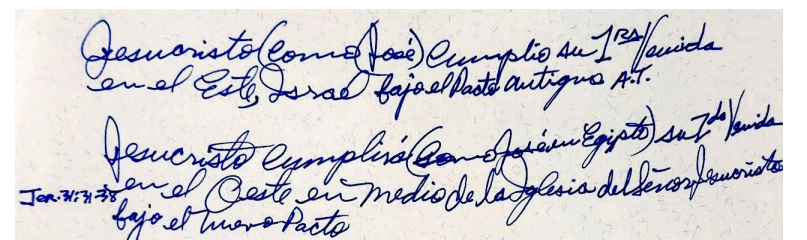 Jesucristo (como José) Cumplio su 1RA Venida
en el Este, Israel bajo el Pacto antiguo A.T.
Jesucristo Cumplirá (como José en Egipto) su 2da Venida
Jer. 31:31-38 en el Oeste en medio de la Iglesia del Señor Jesucristo
bajo el nuevo Pacto